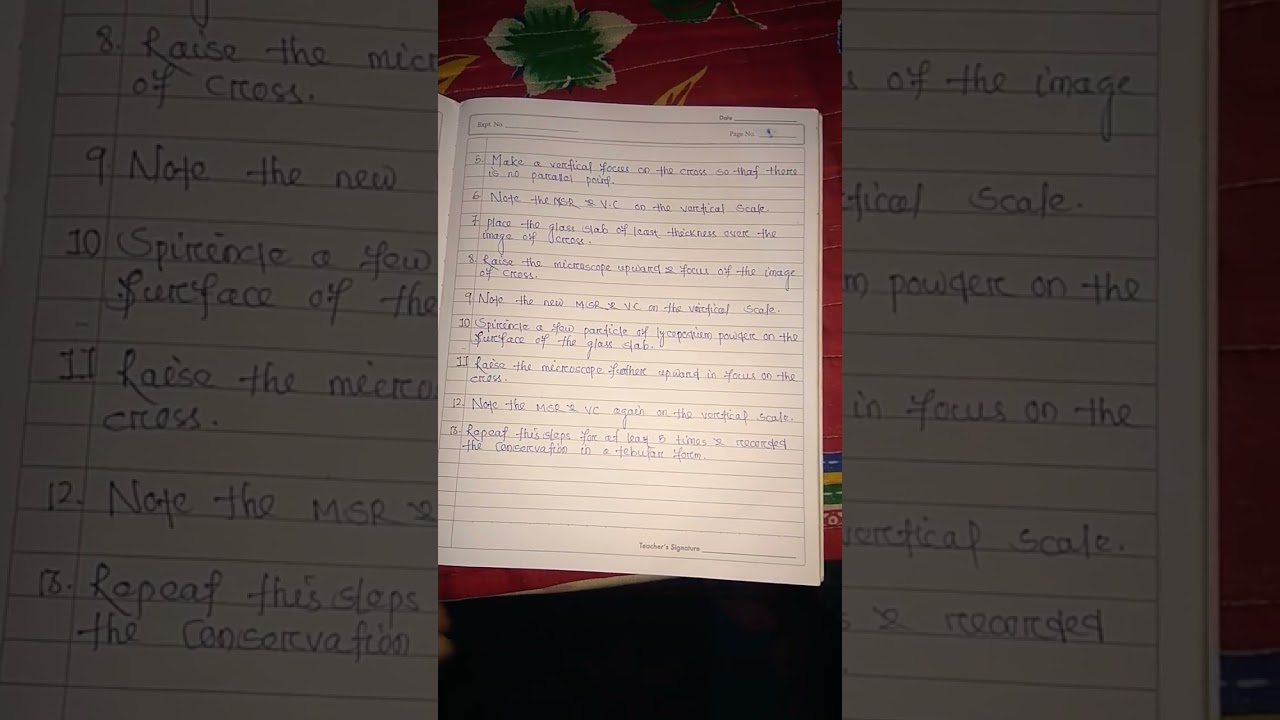 Date
Expt. No.
Page No. 9
5. Make a vertical focus on the cross so that there
is no parallal point.
6 Note the MSR & V.C on the vertical scale.
7. place the glass slab of least thickness over the
image of cross.
8. Raise the microscope upward & focus of the image
of cross.
9 Note the new MSR & VC on the vertical scale.
10 Sprincle a few particle of lycopodium powder on the
surface of the glass slab.
11 Raise the microscope further upward in focus on the
cross.
12. Note the MSR & VC again on the vertical scale.
13. Repeat this steps for at least 5 times & recorded
the conservation in a tebular form.
Teacher's Signature